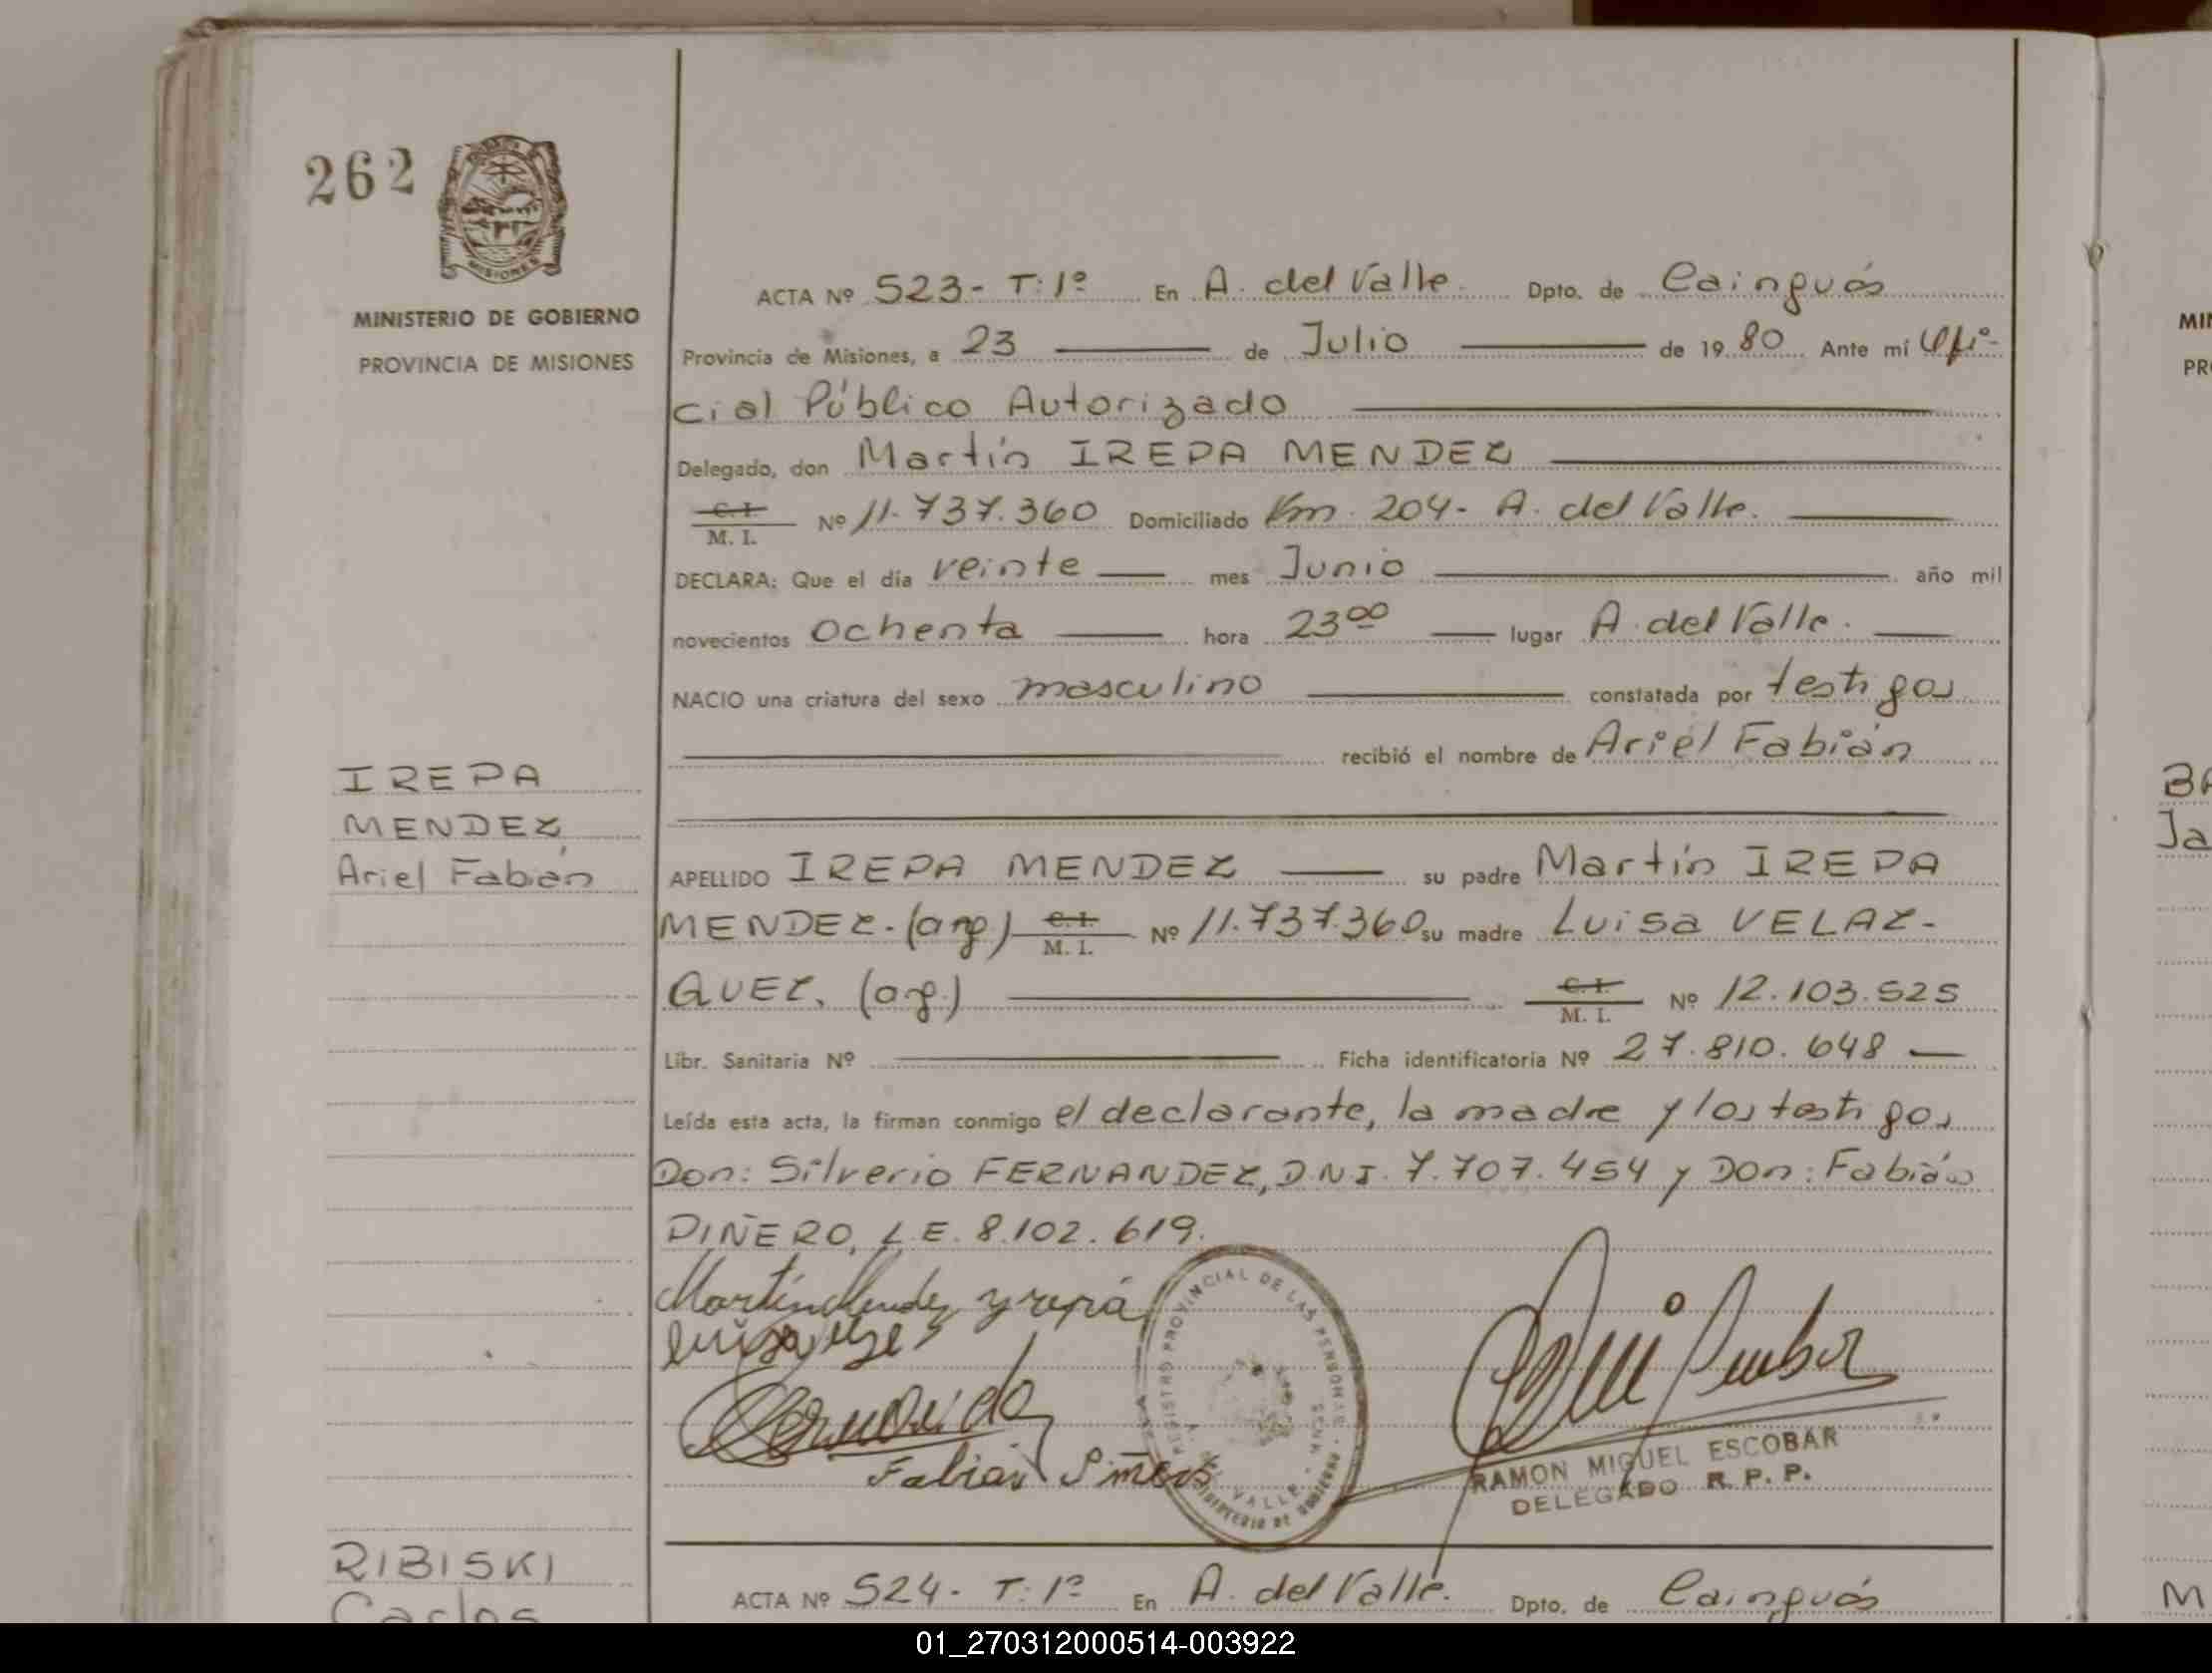 262
MISIONES
MINISTERIO DE GOBIERNO
PROVINCIA DE MISIONES
ACTA Nº 523- T: 1º En A. del Valle. Dpto. de Cainguás
Provincia de Misiones, a 23 de Julio de 1980 Ante mí Ofi-
cial Público Autorizado
Delegado, don Martín IREPA MENDEZ
C. I. M. I. Nº 11.737.360 Domiciliado Km. 204- A. del Valle.
DECLARA: Que el día veinte mes Junio año mil
novecientos ochenta hora 23⁰⁰ lugar A. del Valle.
NACIO una criatura del sexo masculino constatada por testigos
recibió el nombre de Ariel Fabián
IREPA
MENDEZ
Ariel Fabián
APELLIDO IREPA MENDEZ su padre Martín IREPA
MENDEZ. (arg) C. I. M. I. Nº 11.737.360 su madre Luisa VELAZ-
QUEZ. (arg.) C. I. M. I. Nº 12.103.525
Libr. Sanitaria Nº Ficha identificatoria Nº 27.810.648
Leída esta acta, la firman conmigo el declarante, la madre y los testigos
Don: Silverio FERNANDEZ, D.N.I. 7.707.454 y Don: Fabián
PIÑERO, L.E. 8.102.619.
Martín Mendez yrepá
Fabian Piñero
REGISTRO PROVINCIAL DE LAS PERSONAS
A. DEL VALLE - MNES.
MINISTERIO DE GOBIERNO
RAMON MIGUEL ESCOBAR
DELEGADO R. P. P.
RIBISKI
Carlos
ACTA Nº 524- T: 1º En A. del Valle. Dpto. de Cainguás
MI
PR
BA
Ja
M
01_270312000514-003922